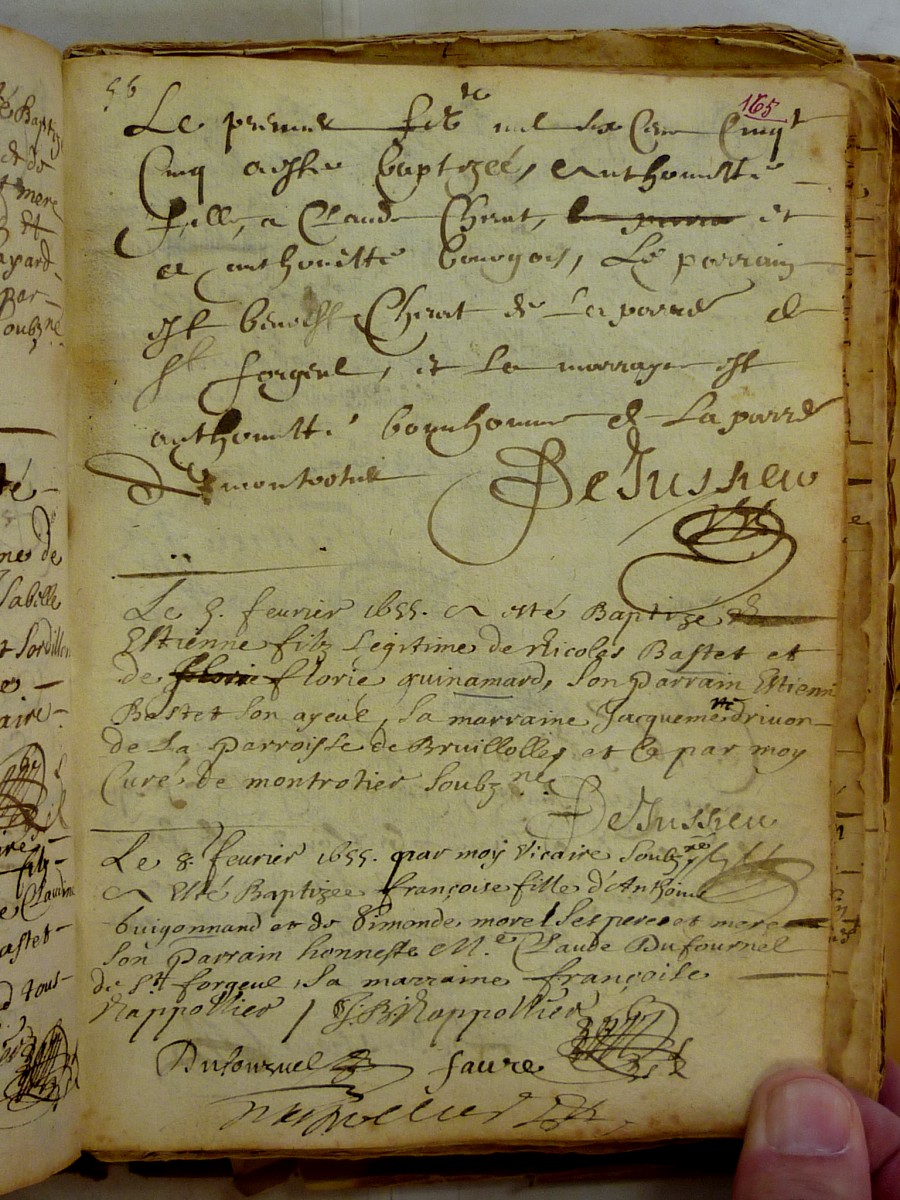 56
165
Le premier feb.re mil six Cens Cinqt
Cinq a este baptizeé, Anthoinette
fille, a Claude Cherat, et
a anthoinette bourgois, Le parrain
est benoist Cherat de La parre de
st forgeul, et La marrayne est
anthoinette bounhomme de La parre
De montrotier DeJussieu
Le 5. feurier 1655. a esté Baptizé
Estienne filz Legitime de Nicolas Bastet et
de florie quinamard, son parrain Estienne
Bastet son ayeul, sa marraine Jacquemette drivon
de La parroisse de Bruillolles et ce par moy
Curé de montrotier soubz.né
DeJussieu
Le 8. feurier 1655. par moy vicaire soubz.né
a Esté Baptizee françoise fille d'Anthoine
buigonnand et de Dimande morel ses pere et mere
son parrain honneste M.e Claude Dufournel
de st forgeul, sa marraine françoise
Rappollier / J.B Rappollier
Dufournel faure
rappollier
té Baptiz
et de
t mere
Et
ayard
Bar
soubz.né
té
me de
Sabille
t sordillon
aire
filz
e Claudine
astet
d sous